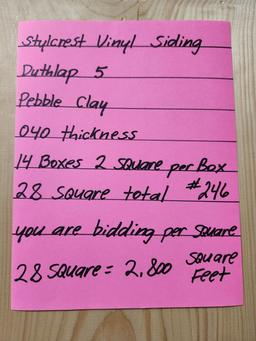 Stylcrest Vinyl Siding
Duthlap 5
Pebble Clay
040 thickness
14 Boxes 2 square per Box
28 square total #246
you are bidding per square
28 square = 2,800 square Feet